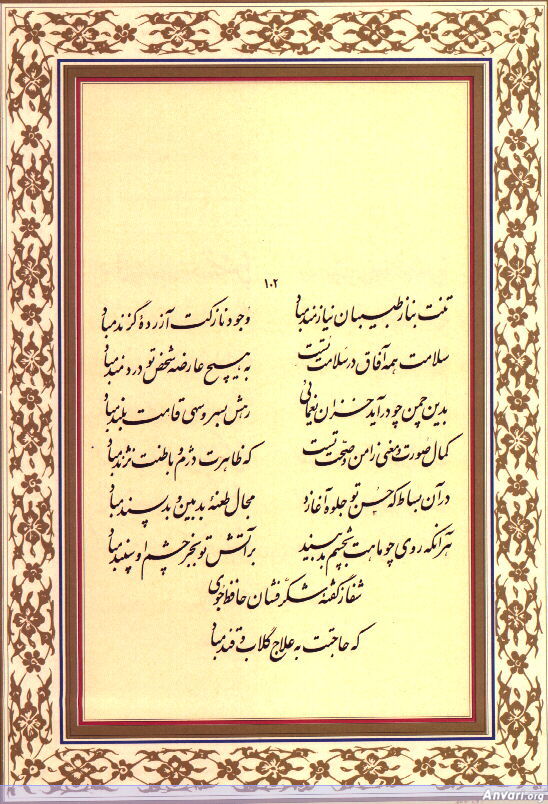 ۱۰۲
تنت بناز طبیبان نیازمند مباد وجود نازکت آزردهٔ گزند مباد
سلامت همه آفاق در سلامت تست به هیچ عارضه شخص تو دردمند مباد
بدین چمن چو درآید خزان یغمائی رهش بسرو سهی قامت بلند مباد
کمال صورت و معنی ز امن و صحت تست که ظاهرت دژم و باطنت نژند مباد
در آن بساط که حسن تو جلوه آغازد مجال طعنهٔ بدبین و بدپسند مباد
هر آنکه روی چو ماهت بچشم بد بیند بر آتش تو بجز چشم او سپند مباد
شفا ز گفتهٔ شکرفشان حافظ جوی
که حاجتت به علاج گلاب و قند مباد
Anvari.org